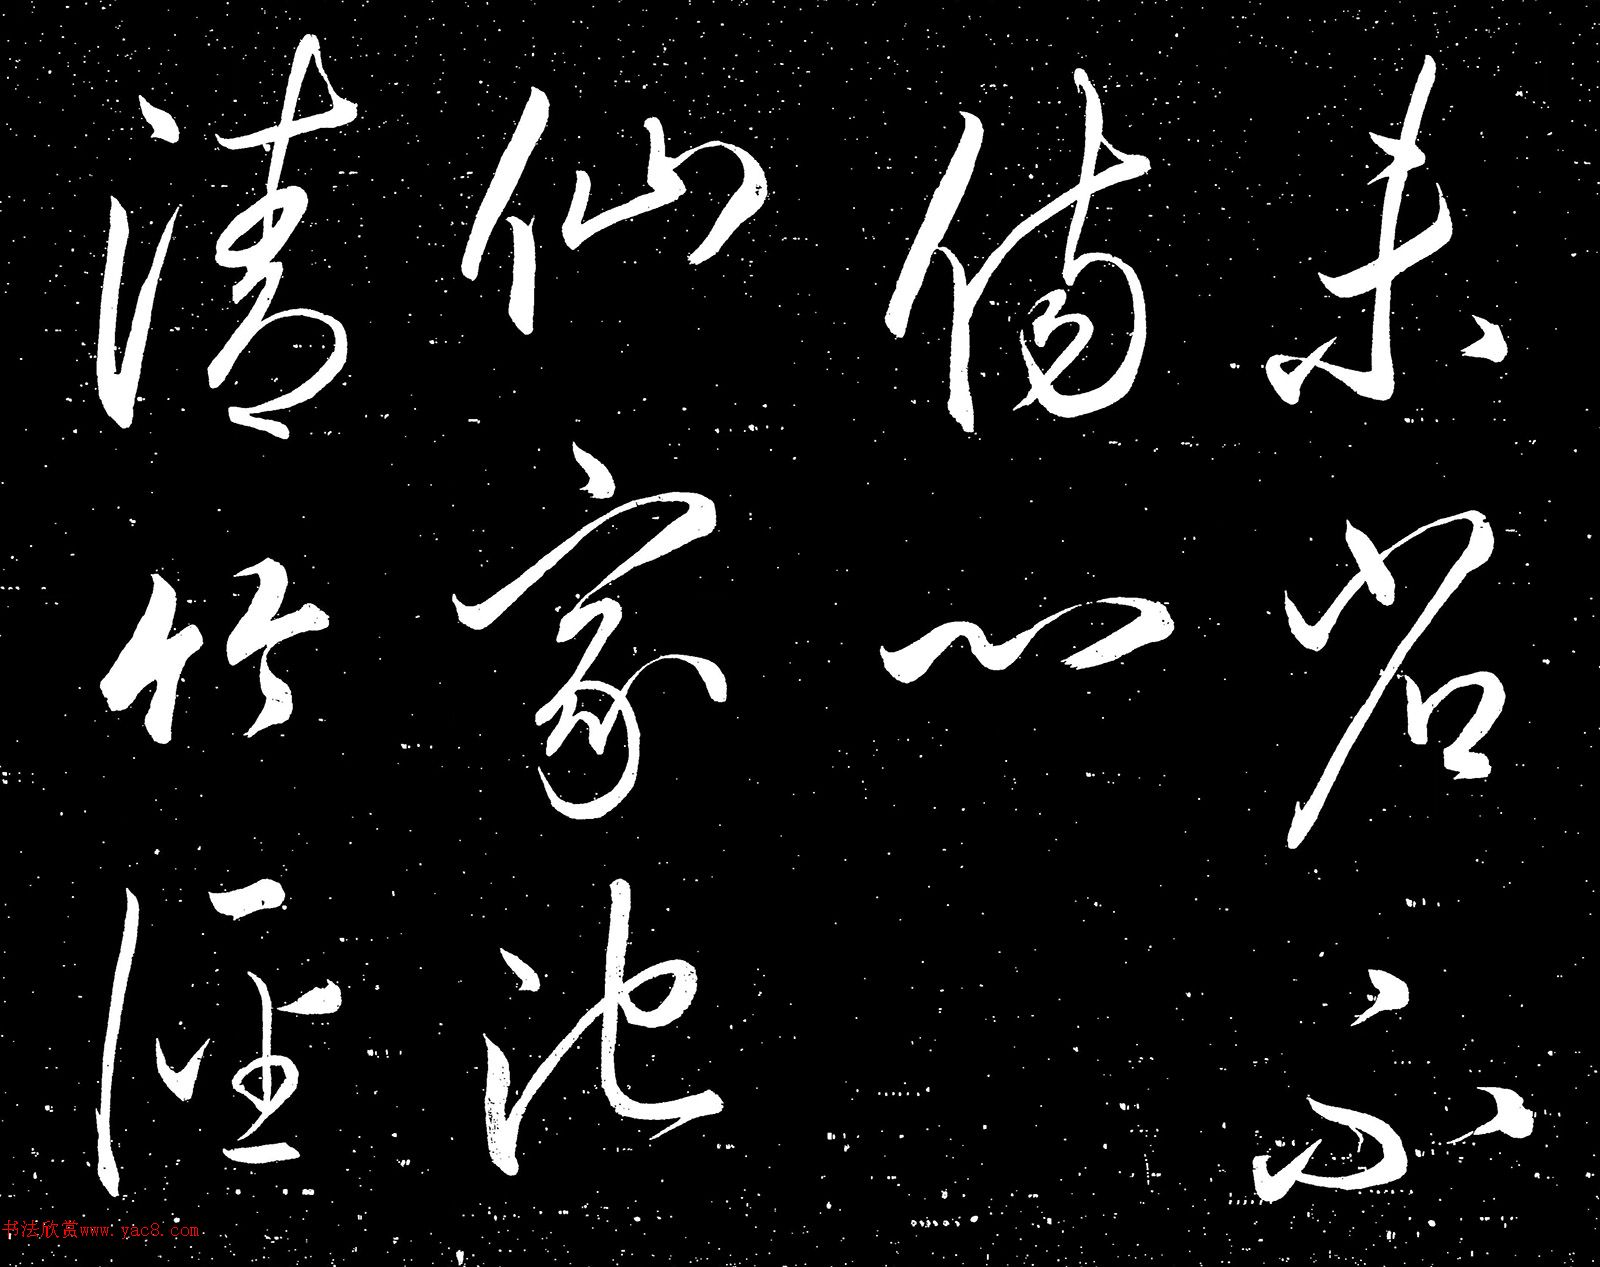 未若不
心
仙家池
清竹
书法欣赏www.yac8.com